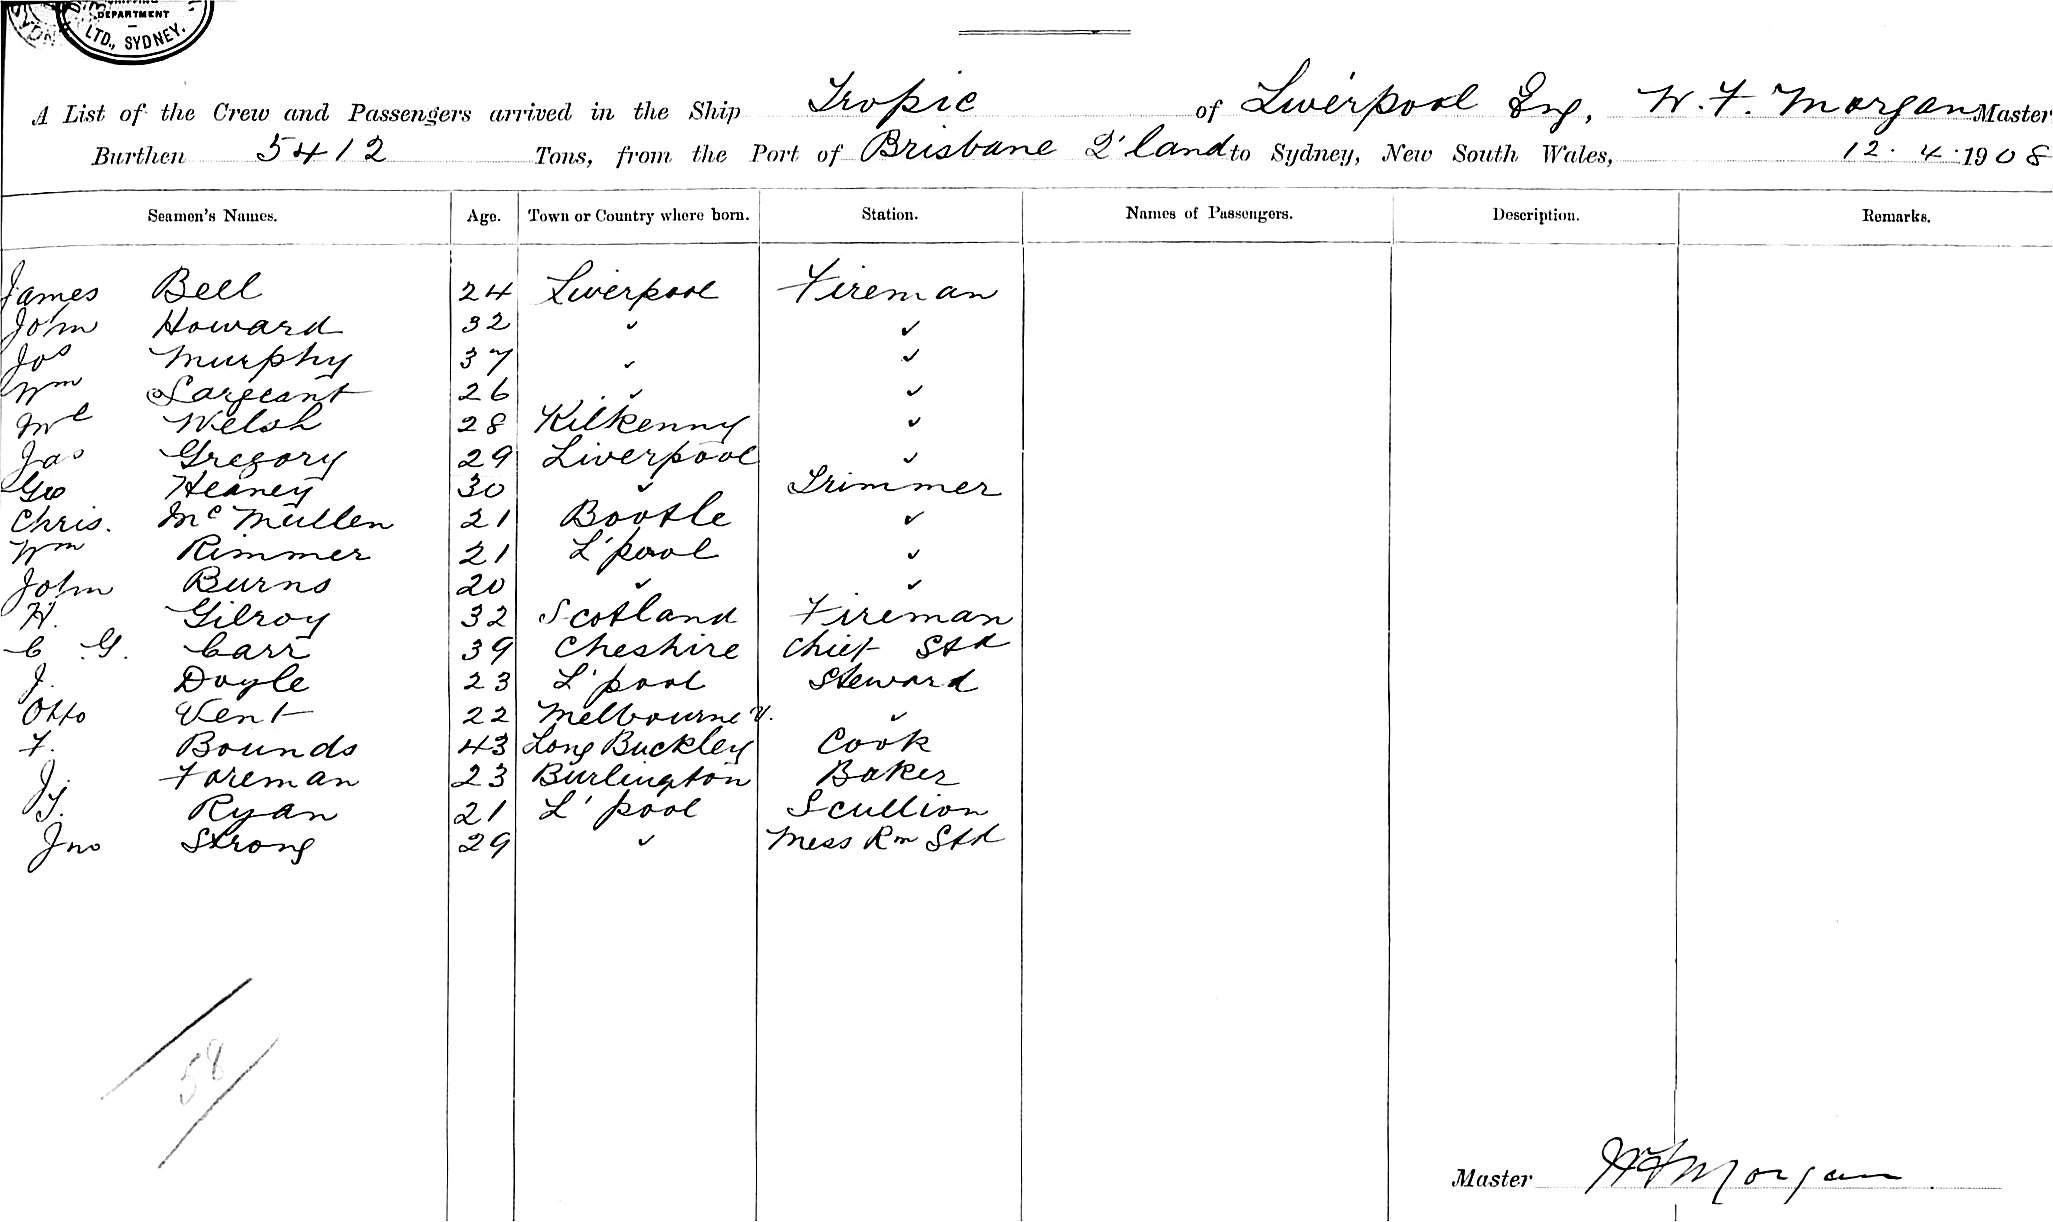 DEPARTMENT
LTD., SYDNEY.
A List of the Crew and Passengers arrived in the Ship Tropic of Liverpool Eng, W. F. Morgan Master
Burthen 5412 Tons, from the Port of Brisbane Q'land to Sydney, New South Wales, 12. 4. 1908
Seamen's Names. Age. Town or Country where born. Station. Names of Passengers. Description. Remarks.
James Bell 24 Liverpool Fireman
John Howard 32 ✓ ✓
Jos Murphy 37 ✓ ✓
Wm Sargeant 26 ✓ ✓
Ml Welsh 28 Kilkenny ✓
Jas Gregory 29 Liverpool ✓
Geo Heaney 30 ✓ Trimmer
Chris. McMullen 21 Bootle ✓
Wm Rimmer 21 L'pool ✓
John Burns 20 ✓ ✓
H. Gilroy 32 Scotland Fireman
C G. Carr 39 Cheshire Chief Std
J. Doyle 23 L'pool Steward
Otto Vent 22 Melbourne V. ✓
F. Bounds 43 Long Buckley Cook
J. Foreman 23 Burlington Baker
Y. Ryan 21 L'pool Scullion
Jno Strong 29 ✓ Mess Rm Std
58
Master W F Morgan